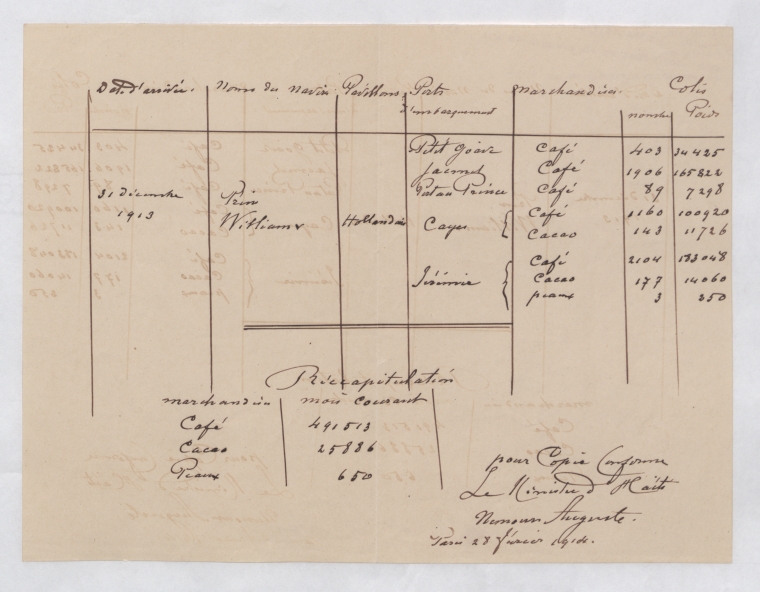 Dat. d'arrivée. Noms des navires Pavillons Ports d'embarquement marchandises. Colis
nombre Poids
Petit Goâve Café 403 34425
Jacmel Café 1906 165822
31 décembre 1913 Prins Willem V Hollandais Port au Prince Café 89 7298
Cayes Café 1160 100920
Cacao 143 11726
Jérémie Café 2104 183048
Cacao 177 14060
peaux 3
Récapitulation
marchandises mois courant
Café 491513
Cacao 25886
Peaux 650
pour Copie Conforme
Le Ministre d'Haïti
Nemours Auguste.
Paris 28 février 1914.